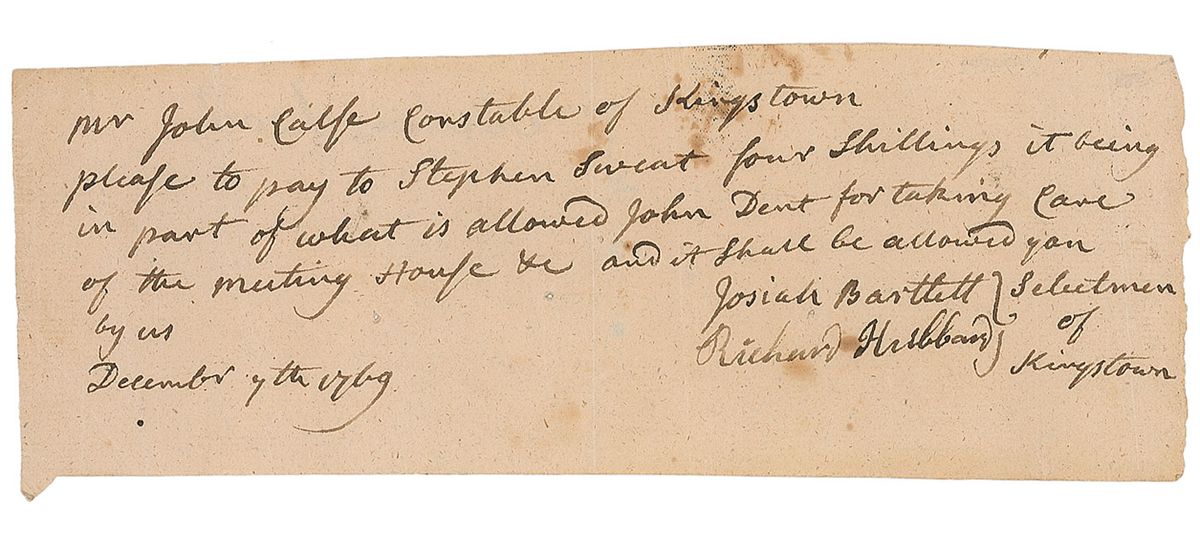 Mr John Calfe Constable of Kingstown
please to pay to Stephen Sweat four Shillings it being
in part of what is allowed John Dent for taking Care
of the meeting House &c and it Shall be allowed you
by us
Josiah Bartlett } Selectmen
Richard Hubbard } of
Kingstown
December 7th 1769